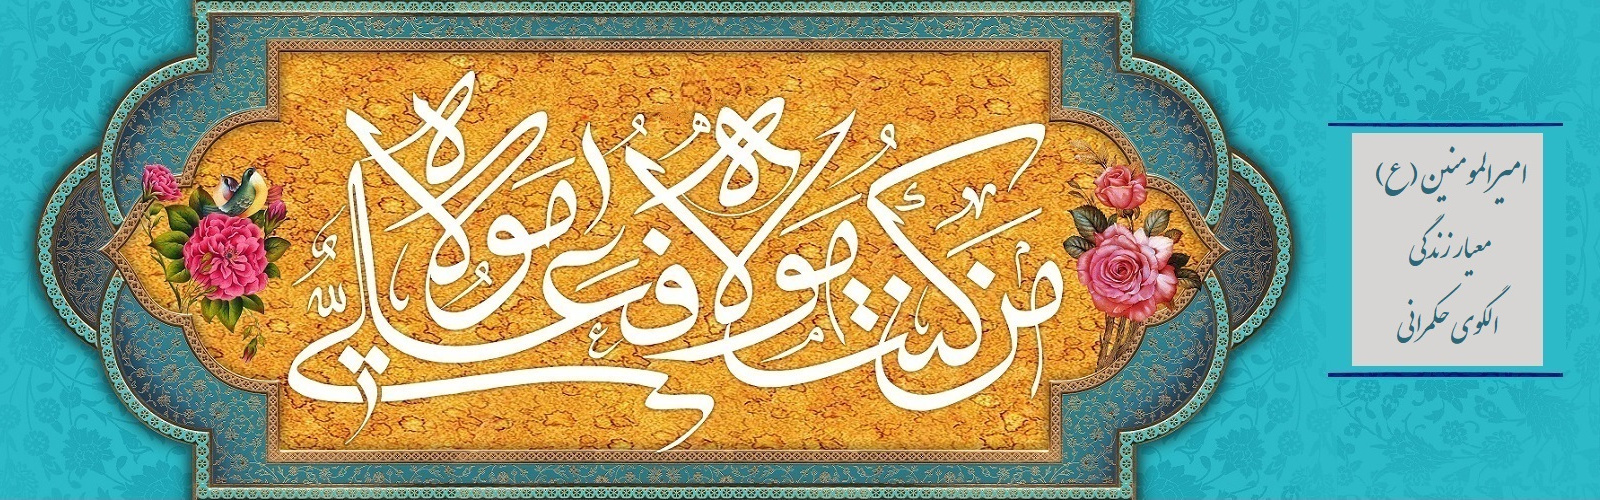 من کنت مولاه فعلی مولاه
امیرالمومنین (ع)
معیار زندگی
الگوی حکمرانی